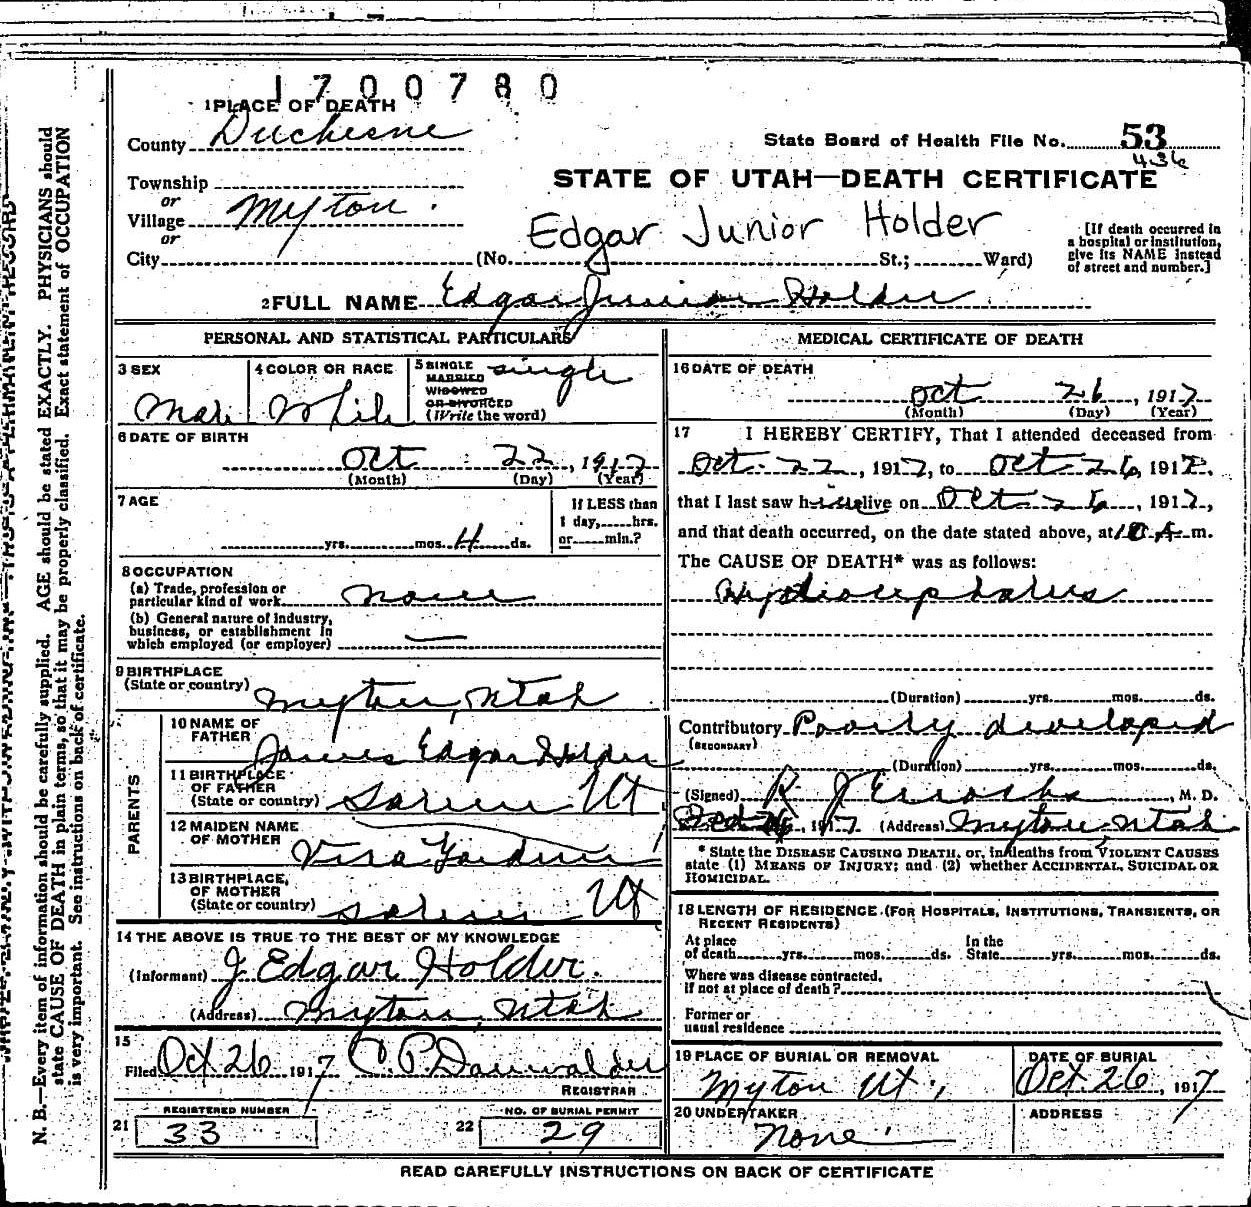 1700780
1 PLACE OF DEATH
County Duchesne
State Board of Health File No. 53
436
Township
or
Village Myton.
or
City (No. St.; Ward)
STATE OF UTAH—DEATH CERTIFICATE
Edgar Junior Holder
[If death occurred in a hospital or institution, give its NAME instead of street and number.]
2 FULL NAME Edgar Junior Holder
PERSONAL AND STATISTICAL PARTICULARS
3 SEX Male
4 COLOR OR RACE White
5 SINGLE MARRIED WIDOWED OR DIVORCED (Write the word) single
6 DATE OF BIRTH
Oct 22, 1917
(Month) (Day) (Year)
7 AGE
yrs. mos. 4 ds.
If LESS than
1 day, hrs.
or min.?
8 OCCUPATION
(a) Trade, profession or
particular kind of work none
(b) General nature of industry,
business, or establishment in
which employed (or employer) —
9 BIRTHPLACE
(State or country) Myton, Utah
PARENTS
10 NAME OF
FATHER James Edgar Holder
11 BIRTHPLACE
OF FATHER
(State or country) Ut
12 MAIDEN NAME
OF MOTHER
13 BIRTHPLACE,
OF MOTHER
(State or country) Ut
14 THE ABOVE IS TRUE TO THE BEST OF MY KNOWLEDGE
(Informant) J. Edgar Holder.
(Address) Myton, Utah
15
Filed Oct 26 1917 C. P. Dauwalder
REGISTRAR
REGISTERED NUMBER
21 33
NO. OF BURIAL PERMIT
22 29
MEDICAL CERTIFICATE OF DEATH
16 DATE OF DEATH
Oct 26, 1917
(Month) (Day) (Year)
17 I HEREBY CERTIFY, That I attended deceased from
Oct. 22, 1917, to Oct 26, 1917,
that I last saw him alive on Oct 26, 1917,
and that death occurred, on the date stated above, at 10 A. m.
The CAUSE OF DEATH* was as follows:
Hydrocephalus
(Duration) yrs. mos. ds.
Contributory Poorly developed
(SECONDARY)
(Duration) yrs. mos. ds.
(Signed) R J Enochs, M. D.
1917 (Address) Myton Utah
* State the DISEASE CAUSING DEATH, or, in deaths from VIOLENT CAUSES
state (1) MEANS OF INJURY; and (2) whether ACCIDENTAL, SUICIDAL OR
HOMICIDAL.
18 LENGTH OF RESIDENCE (FOR HOSPITALS, INSTITUTIONS, TRANSIENTS, OR
RECENT RESIDENTS)
At place In the
of death yrs. mos. ds. State yrs. mos. ds.
Where was disease contracted,
if not at place of death?
Former or
usual residence
19 PLACE OF BURIAL OR REMOVAL
Myton Ut.
DATE OF BURIAL
Oct. 26, 1917
20 UNDERTAKER
None
ADDRESS
READ CAREFULLY INSTRUCTIONS ON BACK OF CERTIFICATE
N. B.—Every item of information should be carefully supplied. AGE should be stated EXACTLY. PHYSICIANS should
state CAUSE OF DEATH in plain terms, so that it may be properly classified. Exact statement of OCCUPATION
is very important. See instructions on back of certificate.